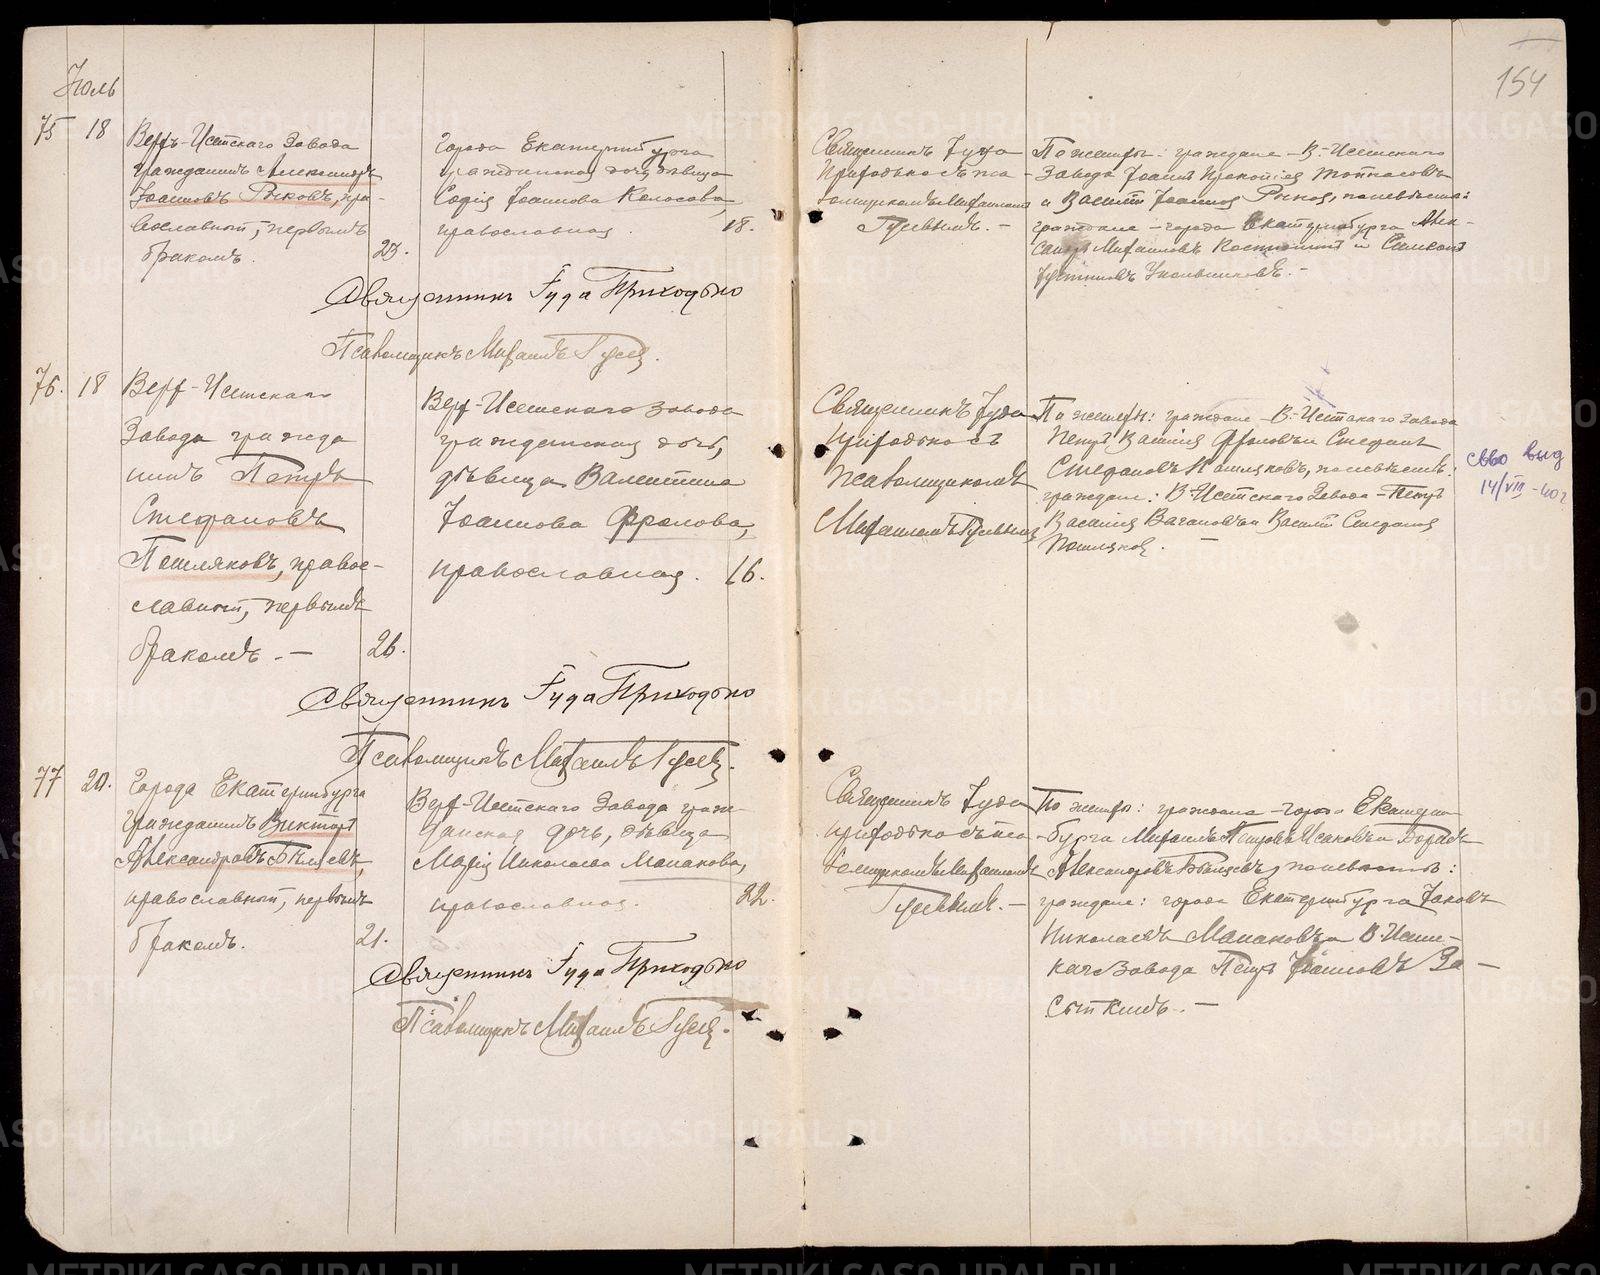 Июль
154
75 18
Верхъ-Исетскаго Завода
гражданинъ Александръ
Іоанновъ Рыковъ, пра-
вославный, первымъ
бракомъ. 23.
Города Екатеринбурга
гражданская дочь девица
Софія Іоаннова Колосова,
православная. 18.
Священникъ Іуда
Приходько съ пса-
ломщикомъ Михаиломъ
Гусевымъ. -
По женихѣ: граждане В.-Исетскаго
Завода Іоаннъ Прокопіевъ
и Василій Іоанновъ Рыковъ, по невѣстѣ:
граждане города Екатеринбурга Алек-
сандръ Михаиловъ и Симеонъ
Священникъ Іуда Приходько
Псаломщикъ Михаилъ Гусевъ.
76. 18
Верх-Исетскаго
Завода гражда
нинъ Петръ
Стефановъ
Пошляковъ, право-
славный, первымъ
бракомъ. - 26.
Верх-Исетскаго Завода
гражданская дочь,
дѣвица Валентина
Іоаннова Фролова,
православная. 16.
Священникъ Іуда
Приходько съ
псаломщикомъ
Михаиломъ Гусевымъ
По женихѣ: граждане В.-Исетскаго Завода
Петръ Фроловъ и Стефанъ
Стефановъ Пошляковъ, по невѣстѣ:
граждане: В.-Исетскаго Завода - Петръ
Василій Стефановъ
Пошляковъ. -
св-во выд
14/VIII-40 г
Священникъ Іуда Приходько
Псаломщикъ Михаилъ Гусевъ.
77 20.
Города Екатеринбурга
гражданинъ Викторъ
Александровъ
православный, первымъ
бракомъ. 21.
Верх-Исетскаго Завода граж-
данская дочь, дѣвица
Марія Николаева Манакова,
православная. 22.
Священникъ Іуда
Приходько съ пса-
ломщикомъ Михаиломъ
Гусевымъ. -
По женихѣ: граждане города Екатерин-
бурга Михаилъ Петровъ Исаковъ и Борисъ
Александровъ по невѣстѣ:
граждане: города Екатеринбурга Іаковъ
Николаевъ Манаковъ и В.-Исет-
каго Завода Петръ Іоанновъ За-
сыпкинъ. -
Священникъ Іуда Приходько
Псаломщикъ Михаилъ Гусевъ.
METRIKI.GASO-URAL.RU